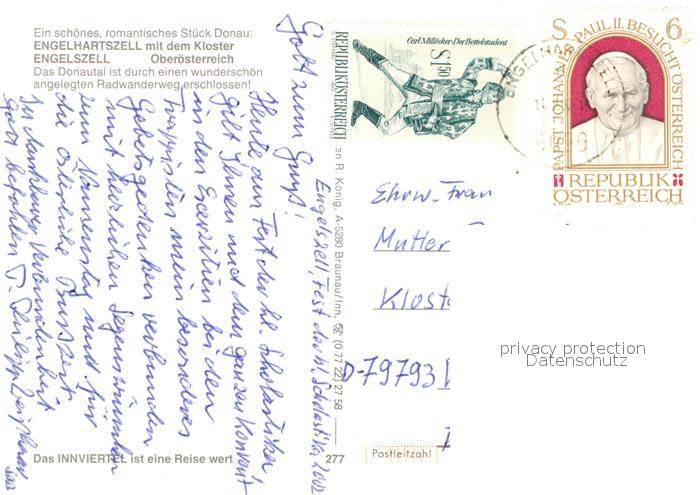 Ein schönes, romantisches Stück Donau:
ENGELHARTSZELL mit dem Kloster
ENGELSZELL Oberösterreich
Das Donautal ist durch einen wunderschön
angelegten Radwanderweg erschlossen!
Gott zum Gruß!
Heute am Fest der hl. Scholastika
gilt Ihnen und dem ganzen Konvent
in den Exerzitien bei den
Trappisten mein besonderes
Gebetsgedenken verbunden
mit herzlichen Segenswünschen
zum Namenstag und für
die österliche Busszeit
In dankbarer Verbundenheit
Gott befohlen
Engelszell, Fest der hl. Scholastika 2002
Das INNVIERTEL ist eine Reise wert
R. König, A-5280 Braunau/Inn, ☎ (0 77 22) 27 58
277
Carl Millöcker·Der Bettelstudent
S 1 50
REPUBLIK ÖSTERREICH
S 6
PAPST JOHANNES PAUL II. BESUCHT ÖSTERREICH
REPUBLIK
ÖSTERREICH
ENGELHAR
Ehrw. Frau
Mutter
Klost
D-79793
Postleitzahl
privacy protection
Datenschutz